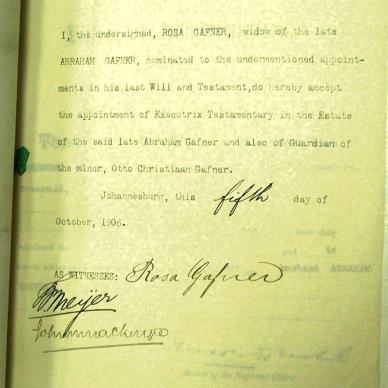 I, the undersigned, ROSA GAFNER, widow of the late
ABRAHAM GAFNER, nominated to the undermentioned appoint-
ments in his last Will and Testament,do hereby accept
the appointment of Executrix Testamentary in the Estate
of the said late Abraham Gafner and also of Guardian of
the minor, Otto Christiaan Gafner.
Johannesburg, this fifth day of
October, 1906.
AS WITNESSES: Rosa Gafner